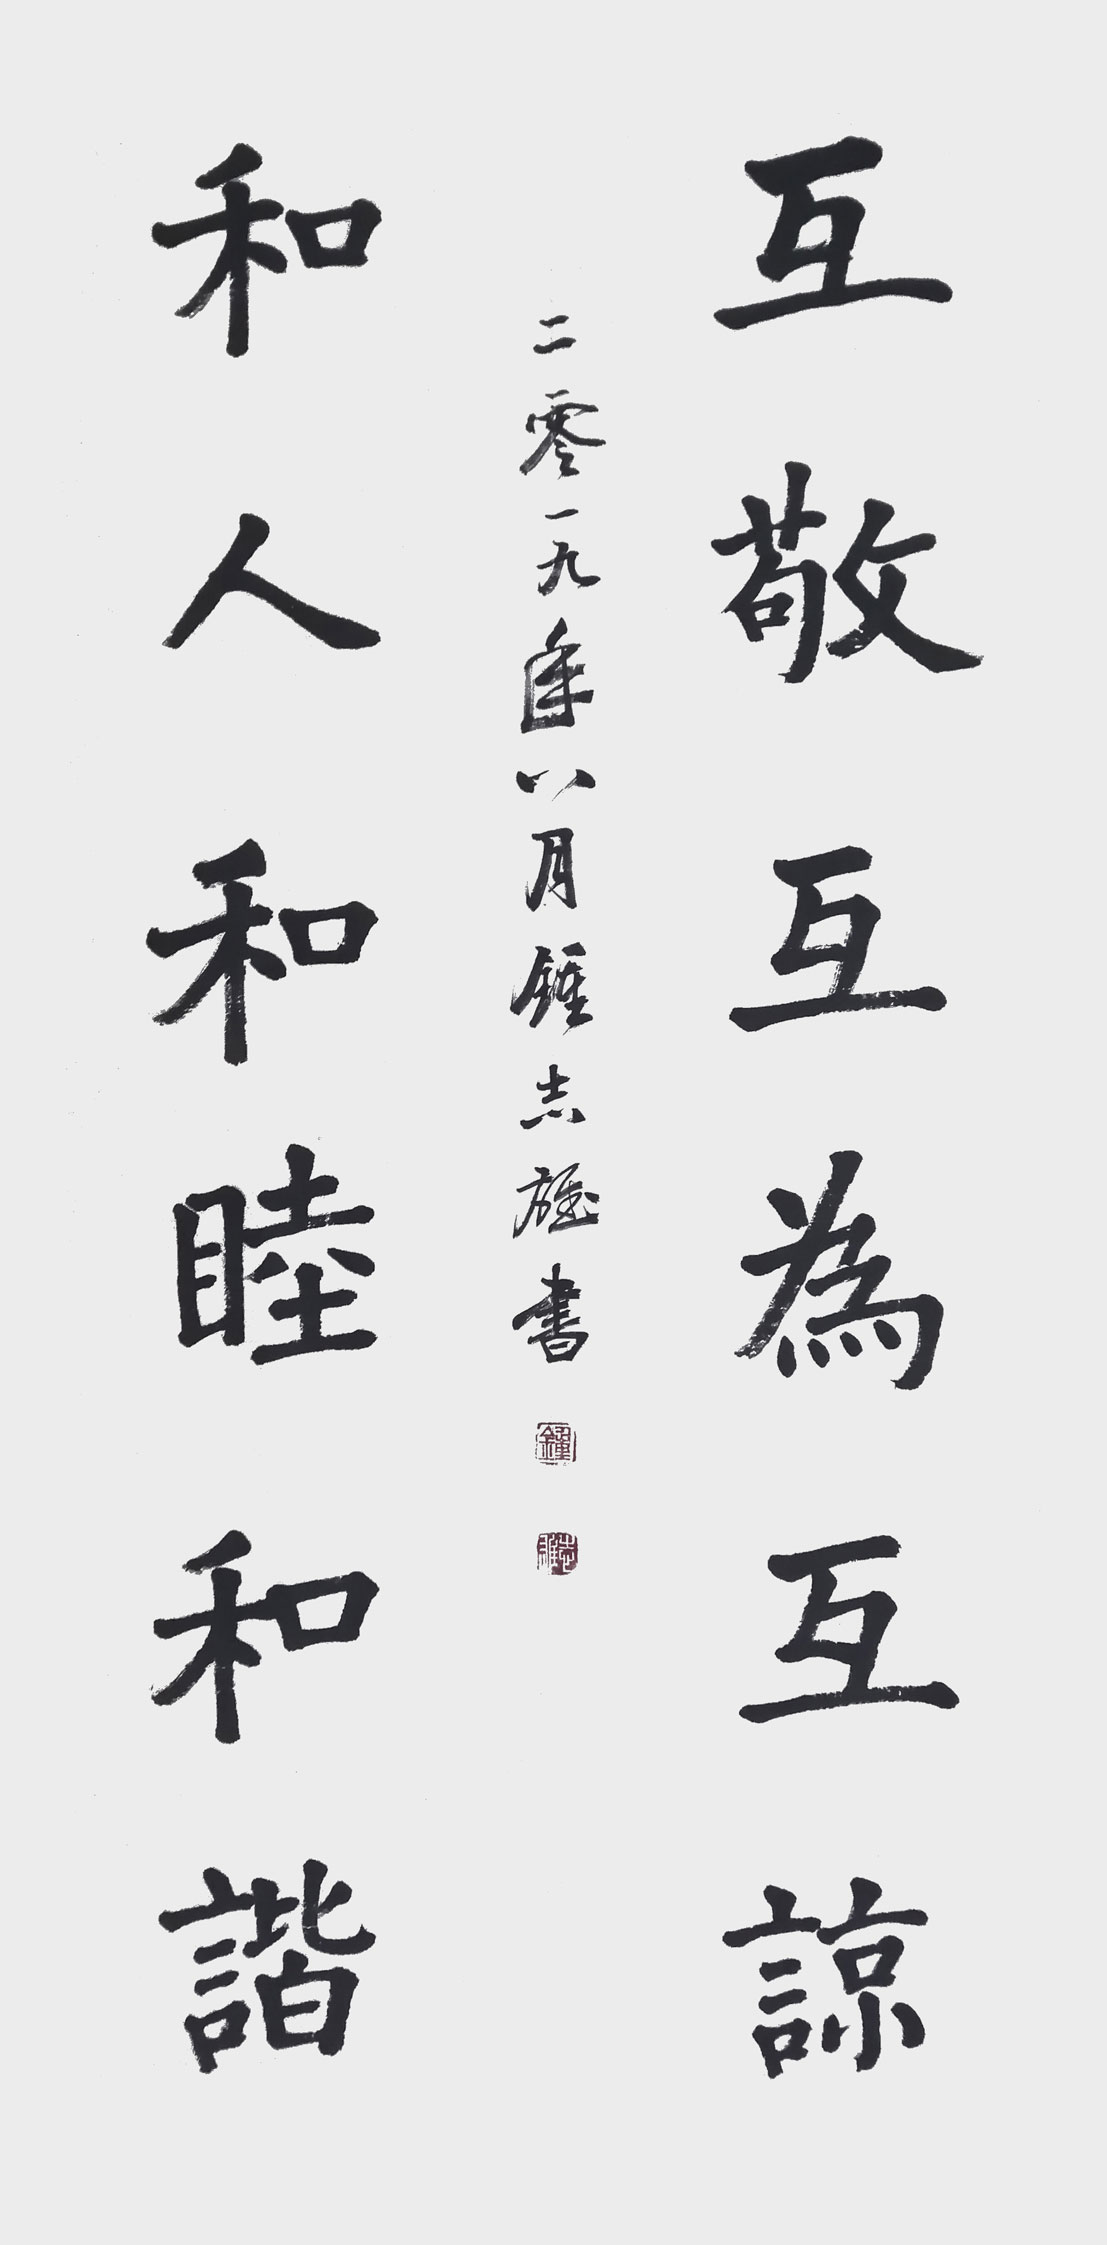 互敬互為互諒
和人和睦和諧
二零一九年八月鍾志雄書
鍾
志雄